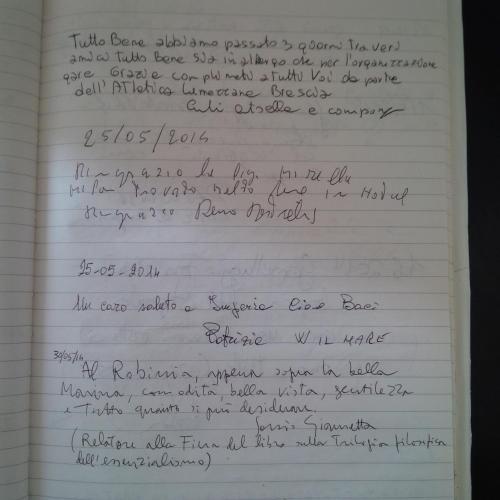 Tutto Bene abbiamo passato 3 giorni tra veri
amici tutto Bene sia in albergo che per l'organizzazione
gare Grazie complimenti a tutti voi da parte
dell'Atletica Lumezzane Brescia
e company
25/05/2014
Ringrazio la Sig. Mirella
mi trovato in Hotel
ringrazio
25-05-2014
Un caro saluto a Ciao Baci
Patrizia W IL MARE
30/05/14
Al Robinia, appena sopra la bella
Marina, comodità, bella vista, gentilezza
e Tutto quanto si può desiderare.
(Relatore alla Fiera del libro sulla Trilogia filosofica
dell'essenzialismo)